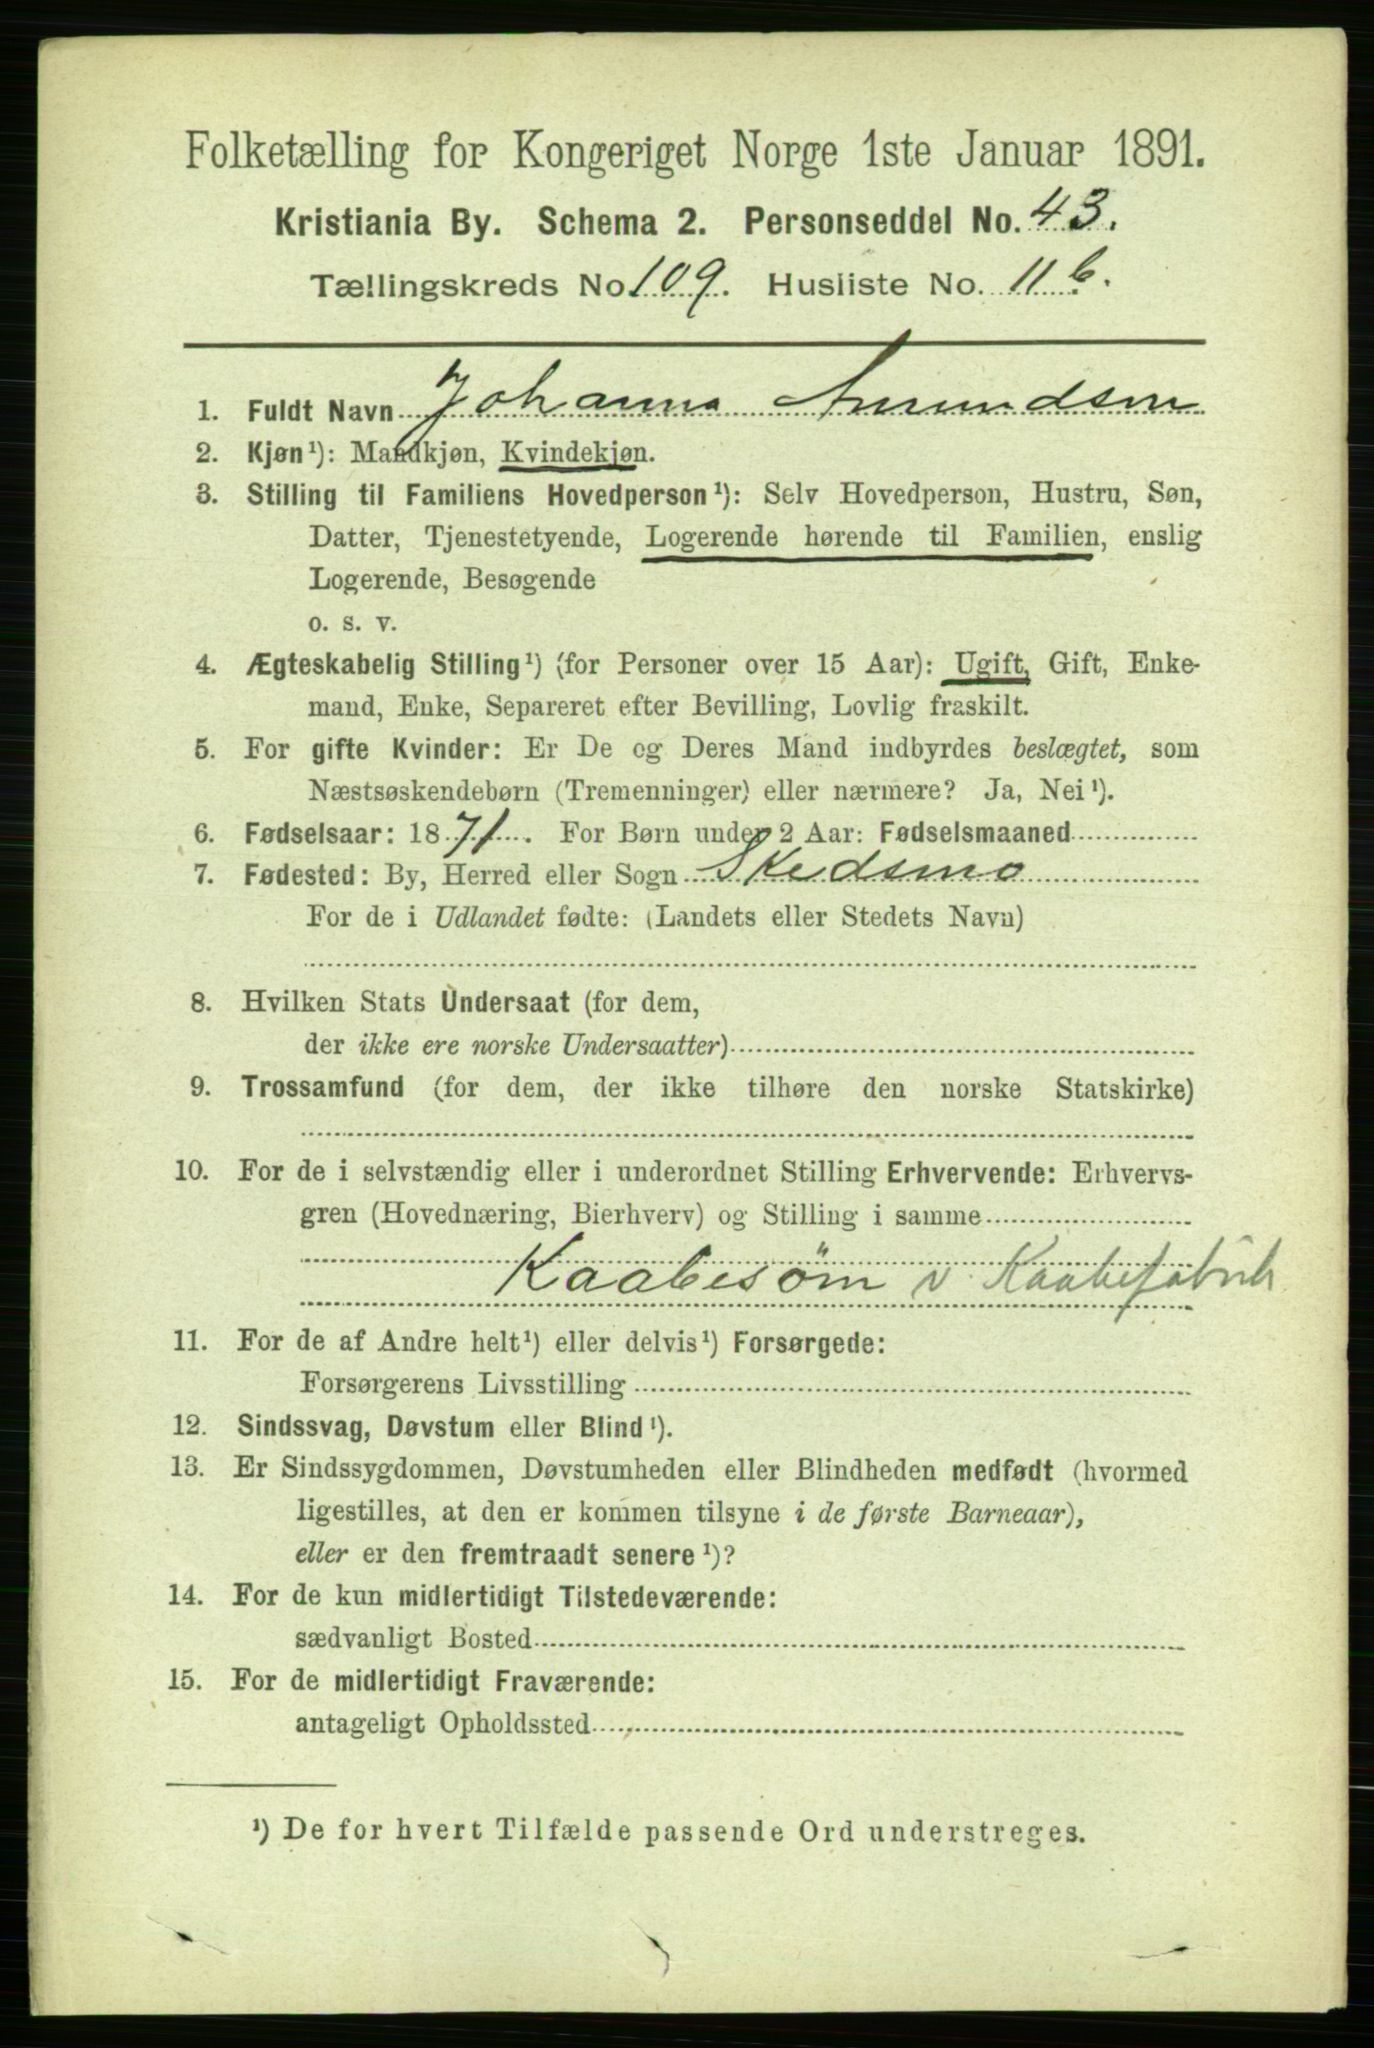 Folketælling for Kongeriget Norge 1ste Januar 1891.
Kristiania By. Schema 2. Personseddel No. 43.
Tællingskreds No 109. Husliste No. 11 b.
1. Fuldt Navn Johanna Amundsen
2. Kjøn¹): Mandkjøn, Kvindekjøn.
3. Stilling til Familiens Hovedperson¹): Selv Hovedperson, Hustru, Søn,
Datter, Tjenestetyende, Logerende hørende til Familien, enslig
Logerende, Besøgende
o. s. v.
4. Ægteskabelig Stilling¹) (for Personer over 15 Aar): Ugift, Gift, Enke-
mand, Enke, Separeret efter Bevilling, Lovlig fraskilt.
5. For gifte Kvinder: Er De og Deres Mand indbyrdes beslægtet, som
Næstsøskendebørn (Tremenninger) eller nærmere? Ja, Nei¹).
6. Fødselsaar: 1871. For Børn under 2 Aar: Fødselsmaaned
7. Fødested: By, Herred eller Sogn Skedsmo
For de i Udlandet fødte: (Landets eller Stedets Navn)
8. Hvilken Stats Undersaat (for dem,
der ikke ere norske Undersaatter)
9. Trossamfund (for dem, der ikke tilhøre den norske Statskirke)
10. For de i selvstændig eller i underordnet Stilling Erhvervende: Erhvervs-
gren (Hovednæring, Bierhverv) og Stilling i samme
Kaabesøm v Kaabefabrik
11. For de af Andre helt¹) eller delvis¹) Forsørgede:
Forsørgerens Livsstilling
12. Sindssvag, Døvstum eller Blind¹).
13. Er Sindssygdommen, Døvstumheden eller Blindheden medfødt (hvormed
ligestilles, at den er kommen tilsyne i de første Barneaar),
eller er den fremtraadt senere¹)?
14. For de kun midlertidigt Tilstedeværende:
sædvanligt Bosted
15. For de midlertidigt Fraværende:
antageligt Opholdssted
¹) De for hvert Tilfælde passende Ord understreges.